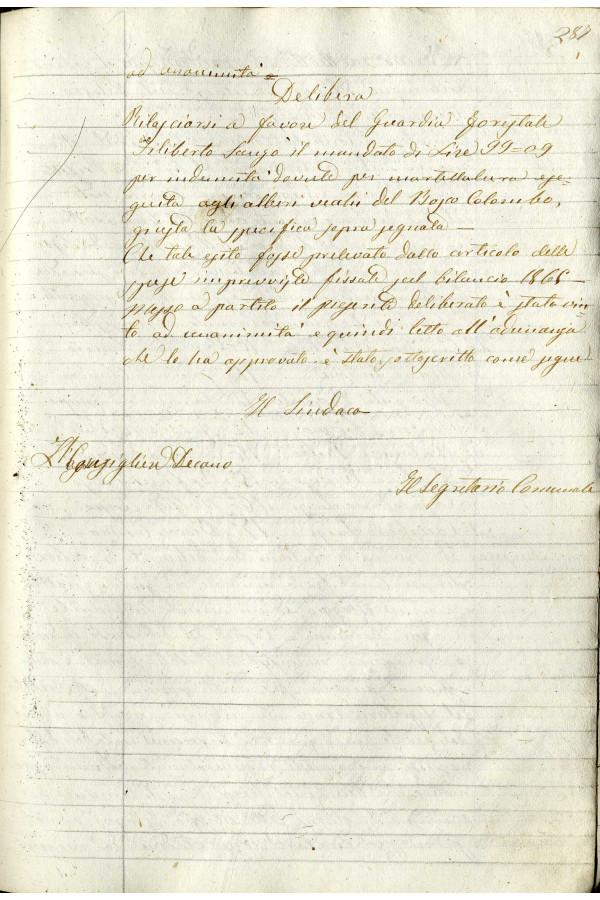 287
ad unanimità
Delibera
Rilasciarsi a favore del Guardia forestale
Filiberto il mandato di Lire 99=09
per indennità dovute per martellatura ese=
guita agli alberi vecchi del Bosco Colombo,
giusta la specifica sopra segnata
Che tale esito fosse prelevato dallo articolo delle
spese impreviste fissate pel bilancio 1865
messo a partito il presente deliberato è stato vin
to ad unanimità e quindi letto all'adunanza
che lo ha approvato è stato sottoscritto come segue
Il Sindaco
Il Consigliere Decano
Il Segretario Comunale